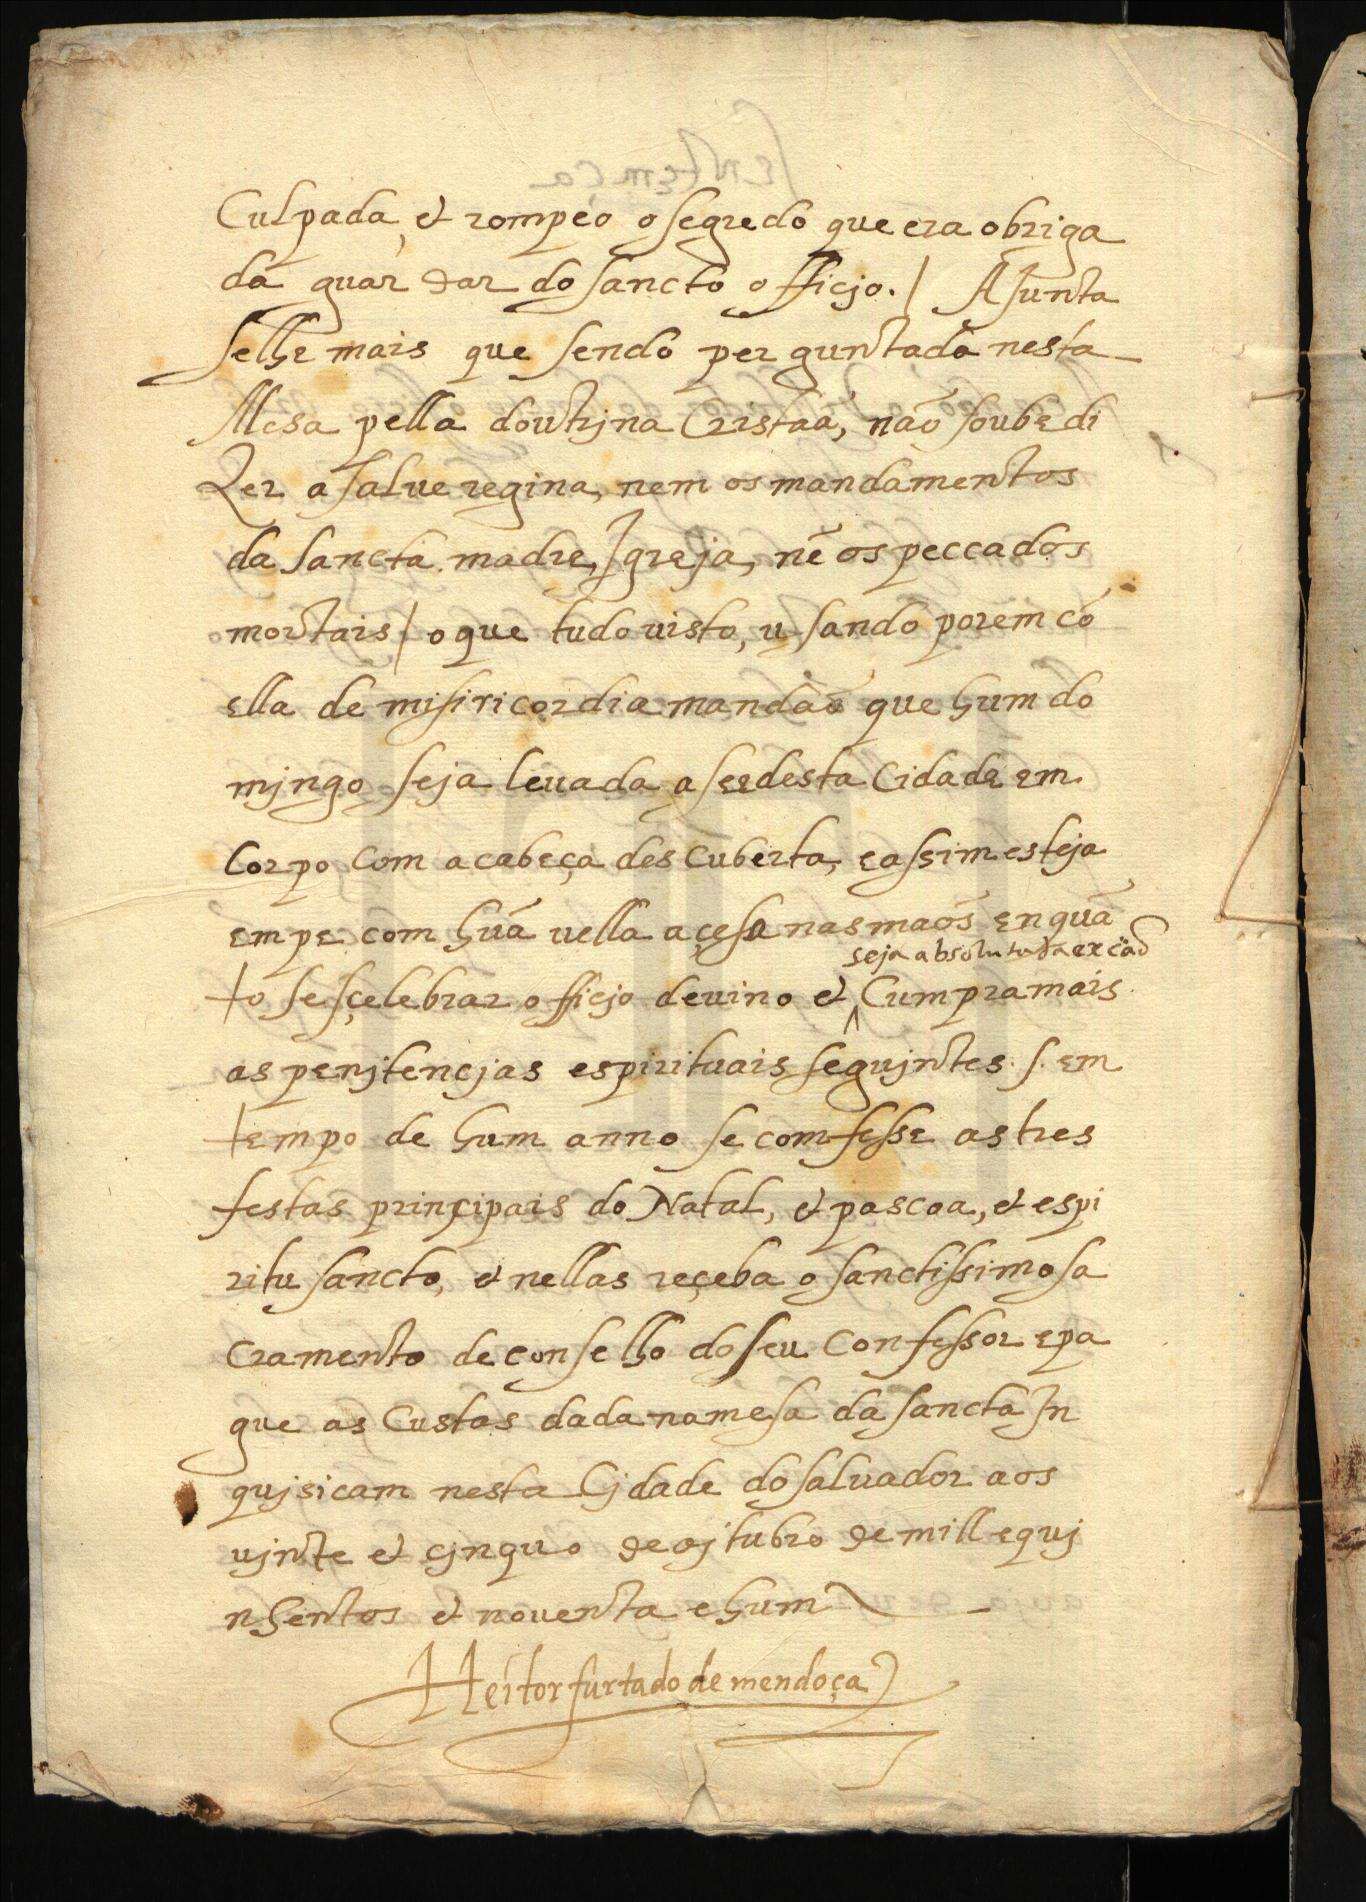 Culpada, et rompeo o segredo que era obriga
da guardar do sancto officjo. / Ajunta
selhe mais que sendo perguntada nesta
Mesa pella doutrjna Cristaã, não soube di
zer a salue regina, nem os mandamentos
da sancta madre Igreja, nẽ os peccados
mortais / o que tudo visto, usando porem cõ
ella de misiricordia mandão que hum do
mjngo seja leuada a see desta Cidade em
Corpo com a cabeça descuberta, e assim esteja
em pe com hũa vella açesa nas mãos enquã
seja absoluta da excaõ
to se çelebrar officjo deuino et Cumpra mais
as penjtencjas espirituais segujntes .s. em
tempo de hum anno se comfesse as tres
festas prinçipais do Natal, et pascoa, et espi
ritu sancto, et nellas reçeba o sanctissimo sa
cramento de conselho do seu Confessor e pa
gue as Custas dada na mesa da sancta In
qujsicam nesta Cjdade do saluador aos
vjnte et çjnquo de ojtubro de mill e quj
nhentos et nouenta e hum
Heitor furtado de mendoça
Sentemça